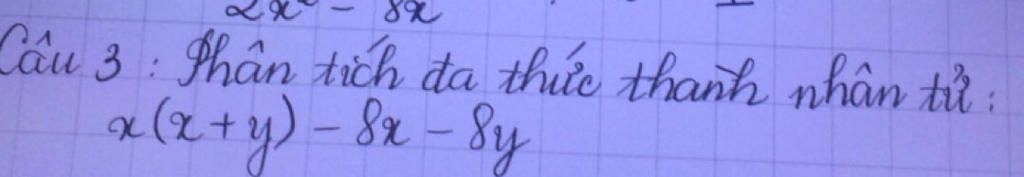 2x² - 8x
Câu 3 : Phân tích đa thức thành nhân tử :
x(x + y) - 8x - 8y